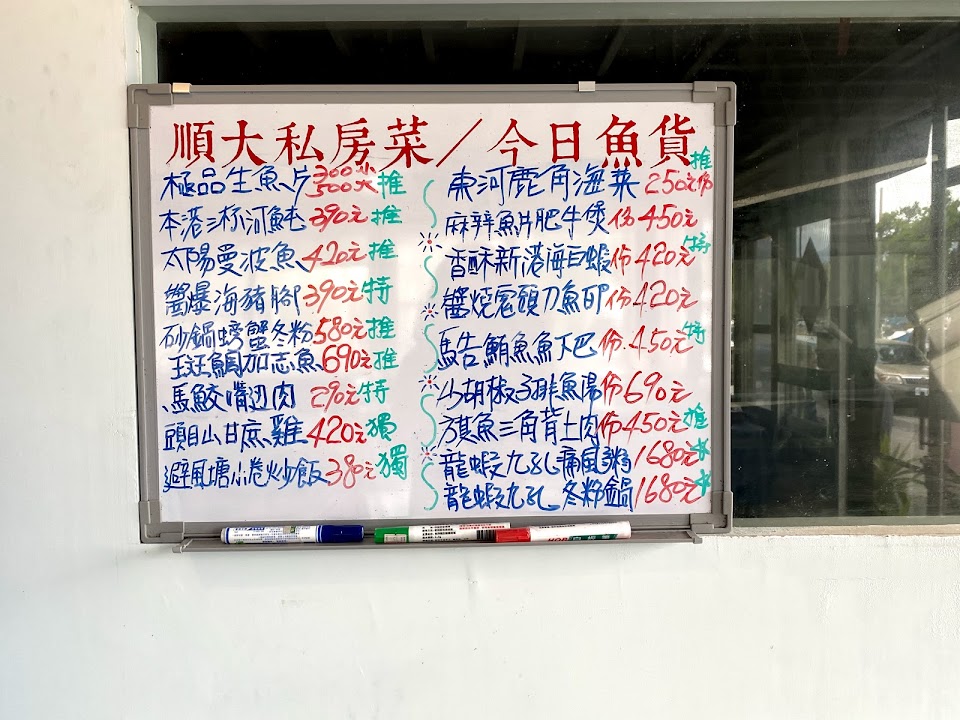 順大私房菜／今日魚貨
極品生魚片 300元 500元 推
本港三杯河魨 390元 推
太陽曼波魚 420元 推
醬爆海豬腳 390元 特
砂鍋螃蟹冬粉 580元 推
玉斑鯛加志魚 690元 推
馬鮫嘴边肉 290元 特
頭目山甘庶雞 420元 獨
避風塘小卷炒飯 380元 獨
東河鹿角海菜 250元份 推
麻辣魚片肥牛煲 份450元
香酥新港海白蝦 份420元 特
醬燒鬼頭刀魚卵 份420元
馬告鮪魚魚下巴 份450元 特
胡椒子排魚湯 份690元
旗魚三角背土肉 份450元 推
龍蝦九孔痛風粥 1680元
龍蝦九孔冬粉鍋 1680元